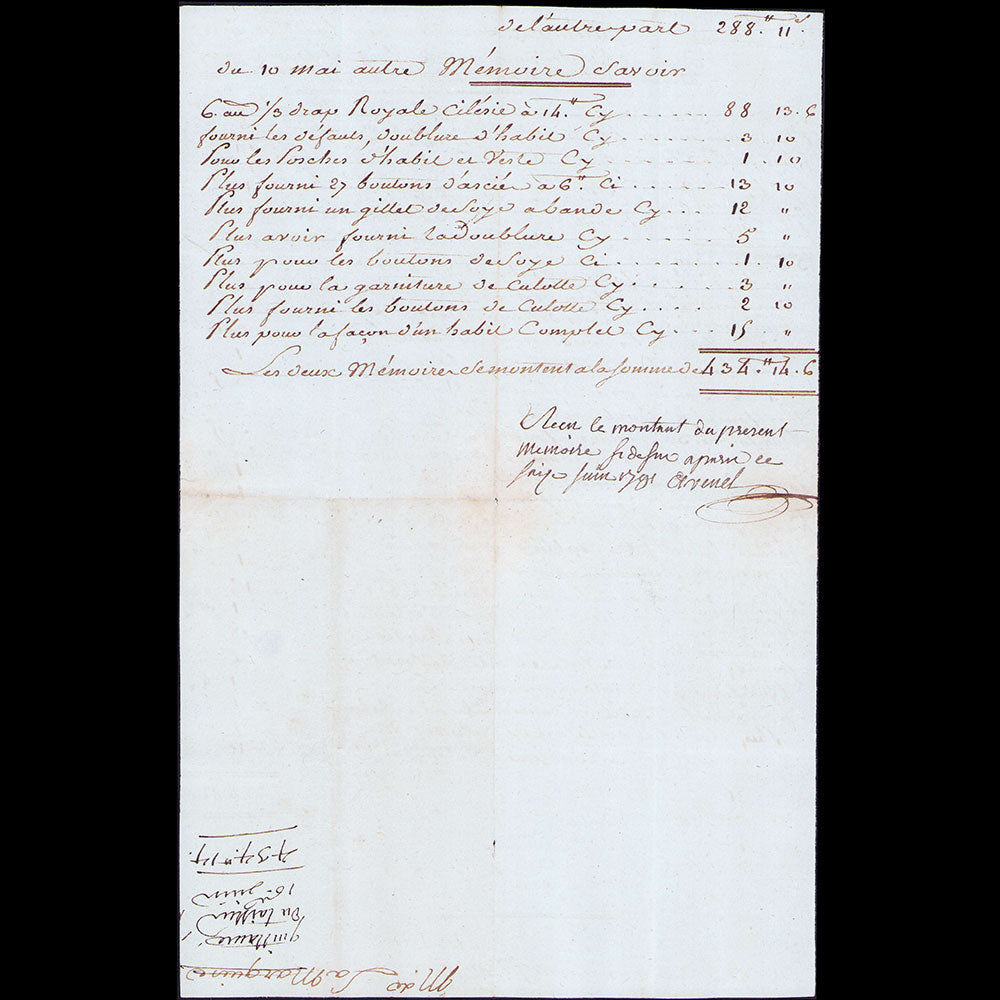 de l'autre part 288.# 11.s
du 10 mai autre Mémoire Savoir
6. au 1/3 drap Royale Cilésie à 14.# Cy ...... 88 13. 6
fourni les défauts, doublure d'habit Cy ...... 3 . 10
Pour les Posches d'habit et Veste Cy ...... 1 . 10
Plus fourni 27 boutons d'asciée à 6.# Ci ...... 13 10
Plus fourni un gillet de Soye a bande Cy ... 12 "
Plus avoir fourni la Doublure Cy ...... 5 "
Plus pour les boutons de Soye Ci ...... 1. 10
Plus pour la garniture de Culotte Cy ... 3 "
Plus fourni les boutons de Culotte Cy ... 2 10
Plus pour la façon d'un habit Complet Cy ... 15 "
Les deux Mémoires Se montent a la Somme de 434.# 14. 6
Recu le montant du present
memoire a paris ce
juin 1791
434.# 14.
16 juin
Du tailleur
quittance
M. de La Marquise